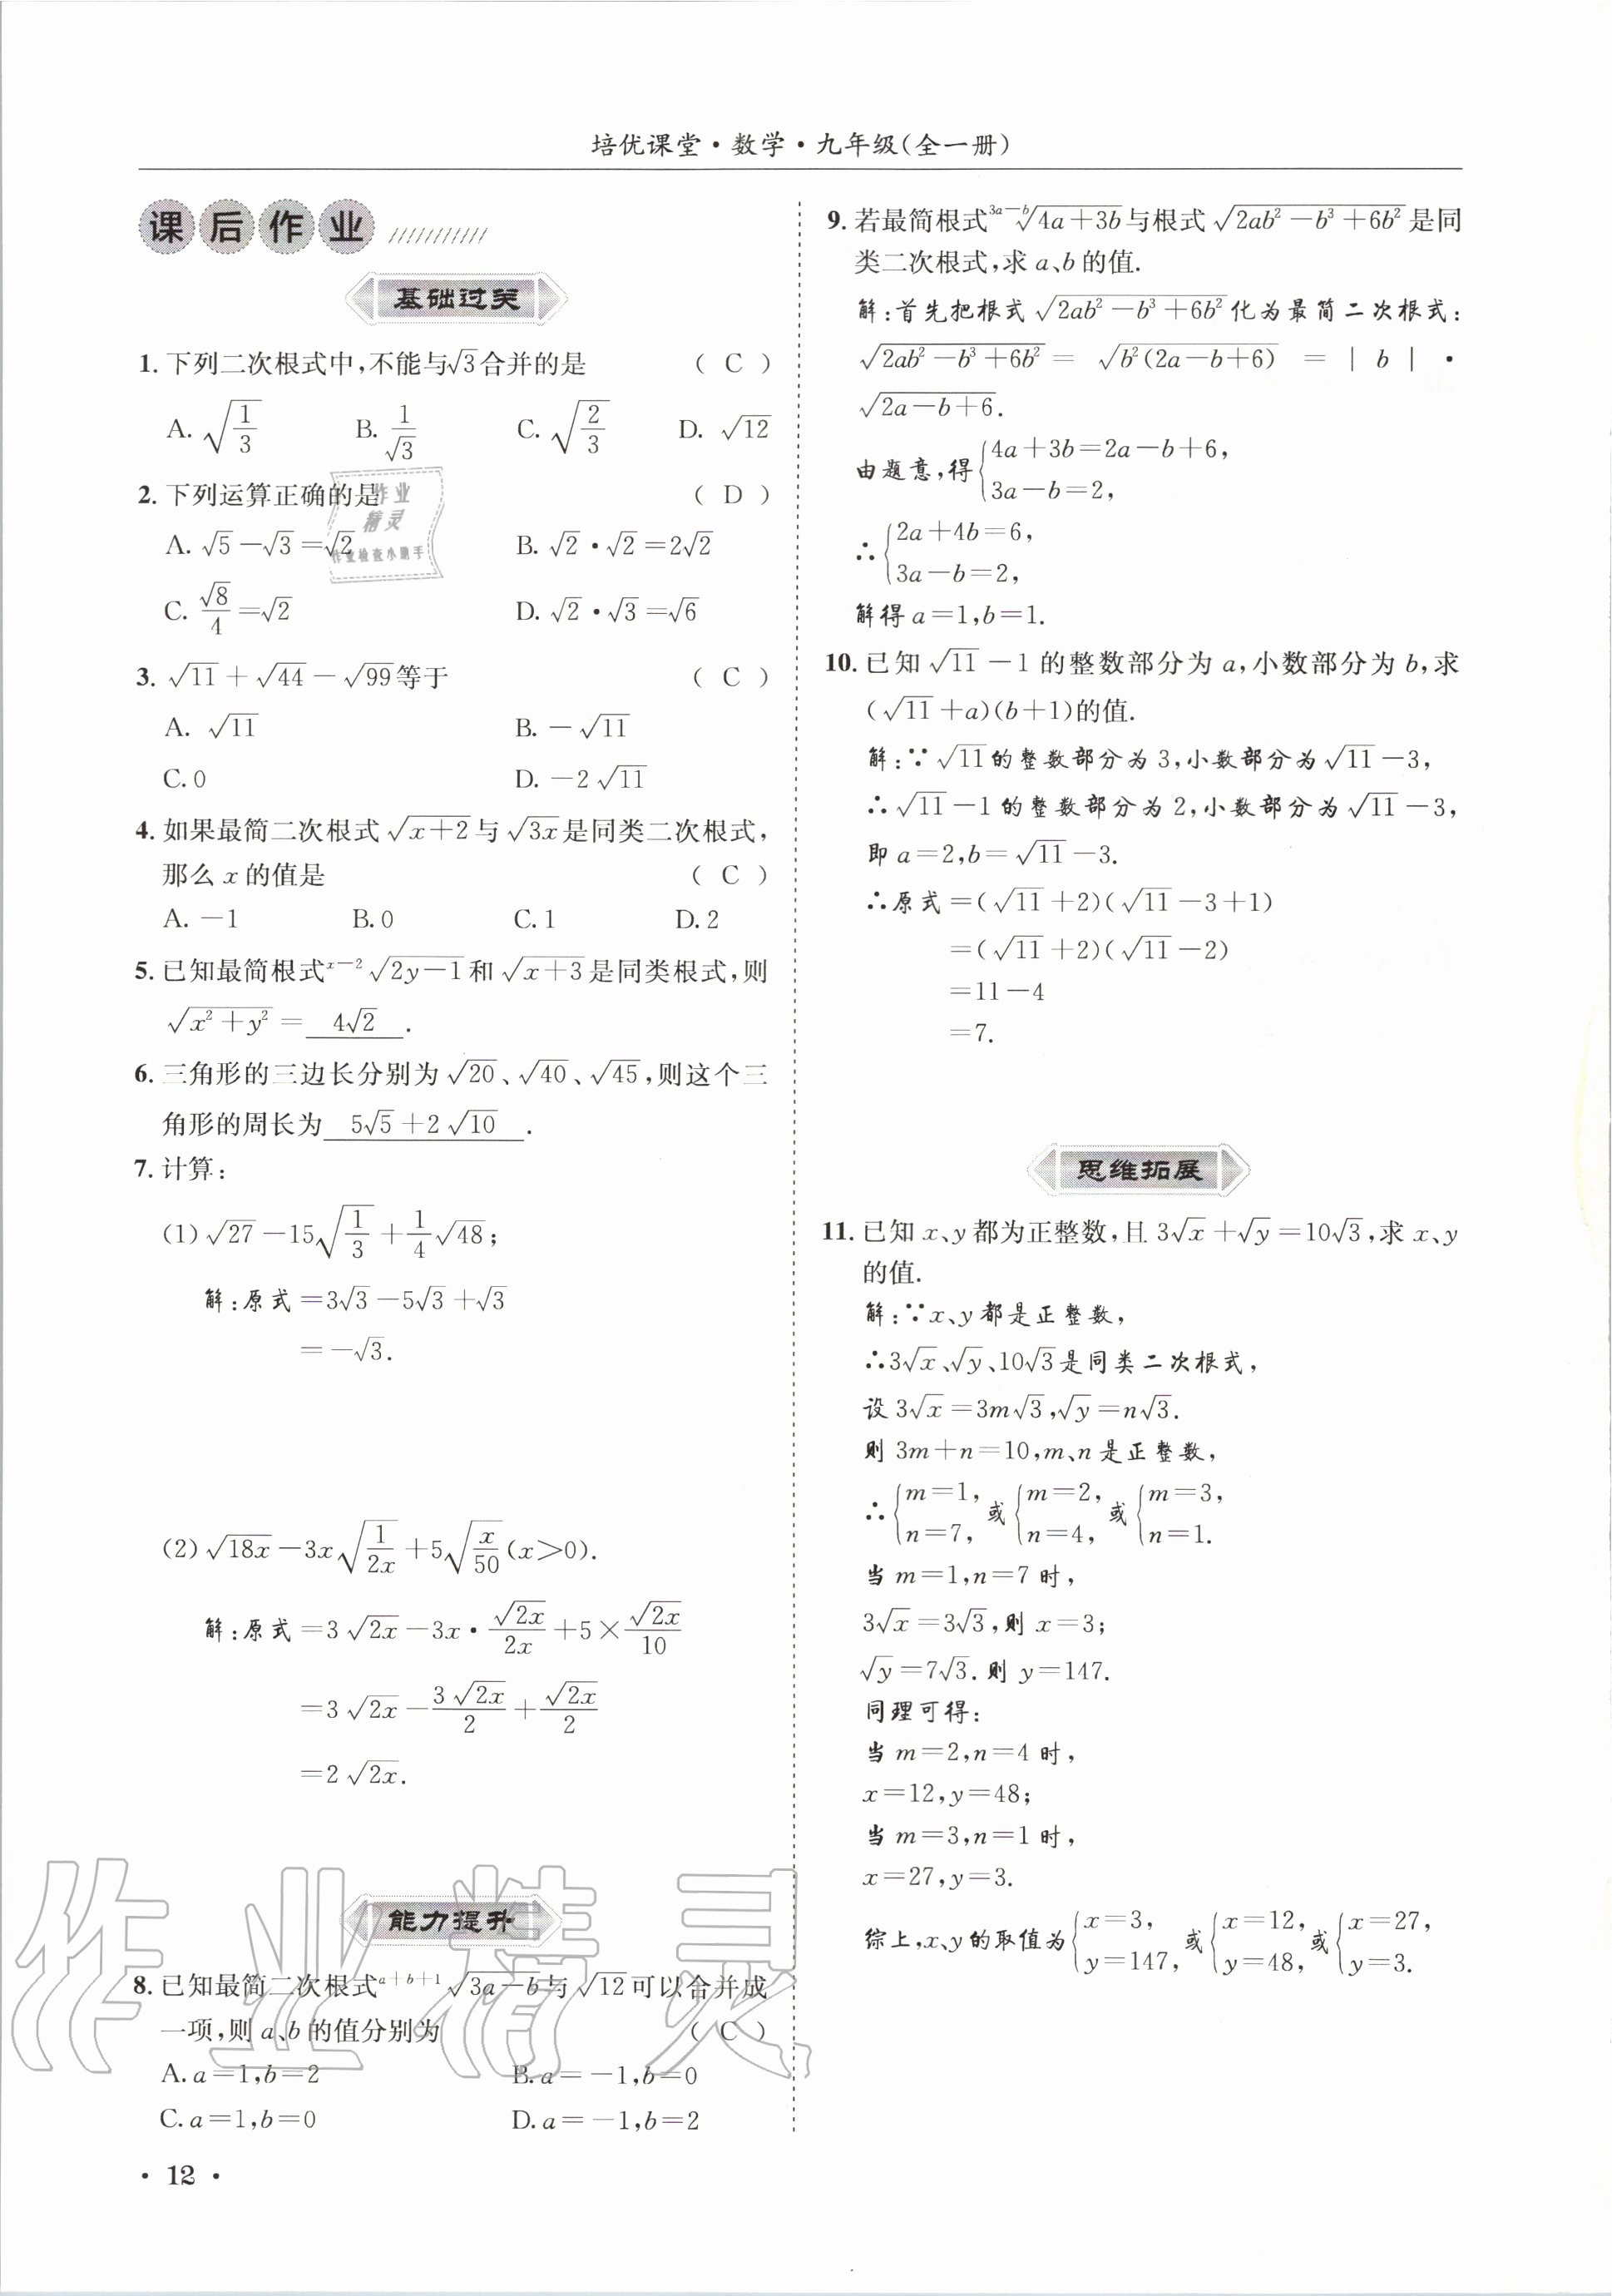 培优课堂·数学·九年级(全一册)
课后作业
基础过关
1. 下列二次根式中,不能与√3合并的是 ( C )
A. √(1/3) B. 1/√3 C. √(2/3) D. √12
2. 下列运算正确的是 ( D )
A. √5－√3＝√2 B. √2·√2＝2√2
C. √8/4＝√2 D. √2·√3＝√6
3. √11＋√44－√99等于 ( C )
A. √11 B. －√11
C. 0 D. －2√11
4. 如果最简二次根式√(x＋2)与√(3x)是同类二次根式,
那么 x 的值是 ( C )
A. －1 B. 0 C. 1 D. 2
5. 已知最简根式 ˣ⁻²√(2y－1)和√(x＋3)是同类根式,则
√(x²＋y²)＝ 4√2 .
6. 三角形的三边长分别为√20、√40、√45,则这个三
角形的周长为 5√5＋2√10 .
7. 计算:
(1)√27－15√(1/3)＋(1/4)√48;
解:原式＝3√3－5√3＋√3
＝－√3.
(2)√(18x)－3x√(1/(2x))＋5√(x/50)(x＞0).
解:原式＝3√(2x)－3x·√(2x)/(2x)＋5×√(2x)/10
＝3√(2x)－3√(2x)/2＋√(2x)/2
＝2√(2x).
能力提升
8. 已知最简二次根式 ᵃ⁺ᵇ⁺¹√(3a－b)与√12可以合并成
一项,则 a、b 的值分别为 ( C )
A. a＝1,b＝2 B. a＝－1,b＝0
C. a＝1,b＝0 D. a＝－1,b＝2
·12·
9. 若最简根式 ³ᵃ⁻ᵇ√(4a＋3b)与根式√(2ab²－b³＋6b²)是同
类二次根式,求 a、b 的值.
解:首先把根式√(2ab²－b³＋6b²)化为最简二次根式:
√(2ab²－b³＋6b²)＝√(b²(2a－b＋6))＝|b|·
√(2a－b＋6).
由题意,得{4a＋3b＝2a－b＋6,
3a－b＝2,
∴{2a＋4b＝6,
3a－b＝2,
解得 a＝1,b＝1.
10. 已知√11－1 的整数部分为 a,小数部分为 b,求
(√11＋a)(b＋1)的值.
解:∵√11的整数部分为 3,小数部分为√11－3,
∴√11－1 的整数部分为 2,小数部分为√11－3,
即 a＝2,b＝√11－3.
∴原式＝(√11＋2)(√11－3＋1)
＝(√11＋2)(√11－2)
＝11－4
＝7.
思维拓展
11. 已知 x、y 都为正整数,且 3√x＋√y＝10√3,求 x、y
的值.
解:∵x、y 都是正整数,
∴3√x、√y、10√3是同类二次根式,
设 3√x＝3m√3,√y＝n√3.
则 3m＋n＝10,m、n 是正整数,
∴{m＝1, 或{m＝2, 或{m＝3,
n＝7, n＝4, n＝1.
当 m＝1,n＝7 时,
3√x＝3√3,则 x＝3;
√y＝7√3.则 y＝147.
同理可得:
当 m＝2,n＝4 时,
x＝12,y＝48;
当 m＝3,n＝1 时,
x＝27,y＝3.
综上,x、y 的取值为{x＝3, 或{x＝12, 或{x＝27,
y＝147, y＝48, y＝3.
作业
精灵
作业检查小助手
作业精灵